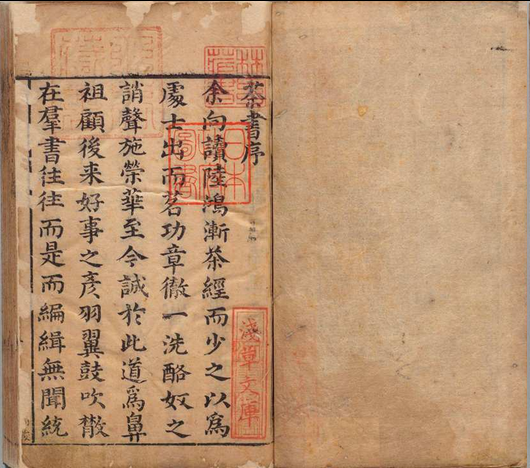 茶書序
余向讀陸鴻漸茶經而少之以為
處士出而茗功章徹一洗酪奴之
誚聲施榮華至今誠於此道爲鼻
祖顧後来好事之彦羽翼鼓吹散
在羣書往往而是而編緝無聞統
淺草文庫
日本